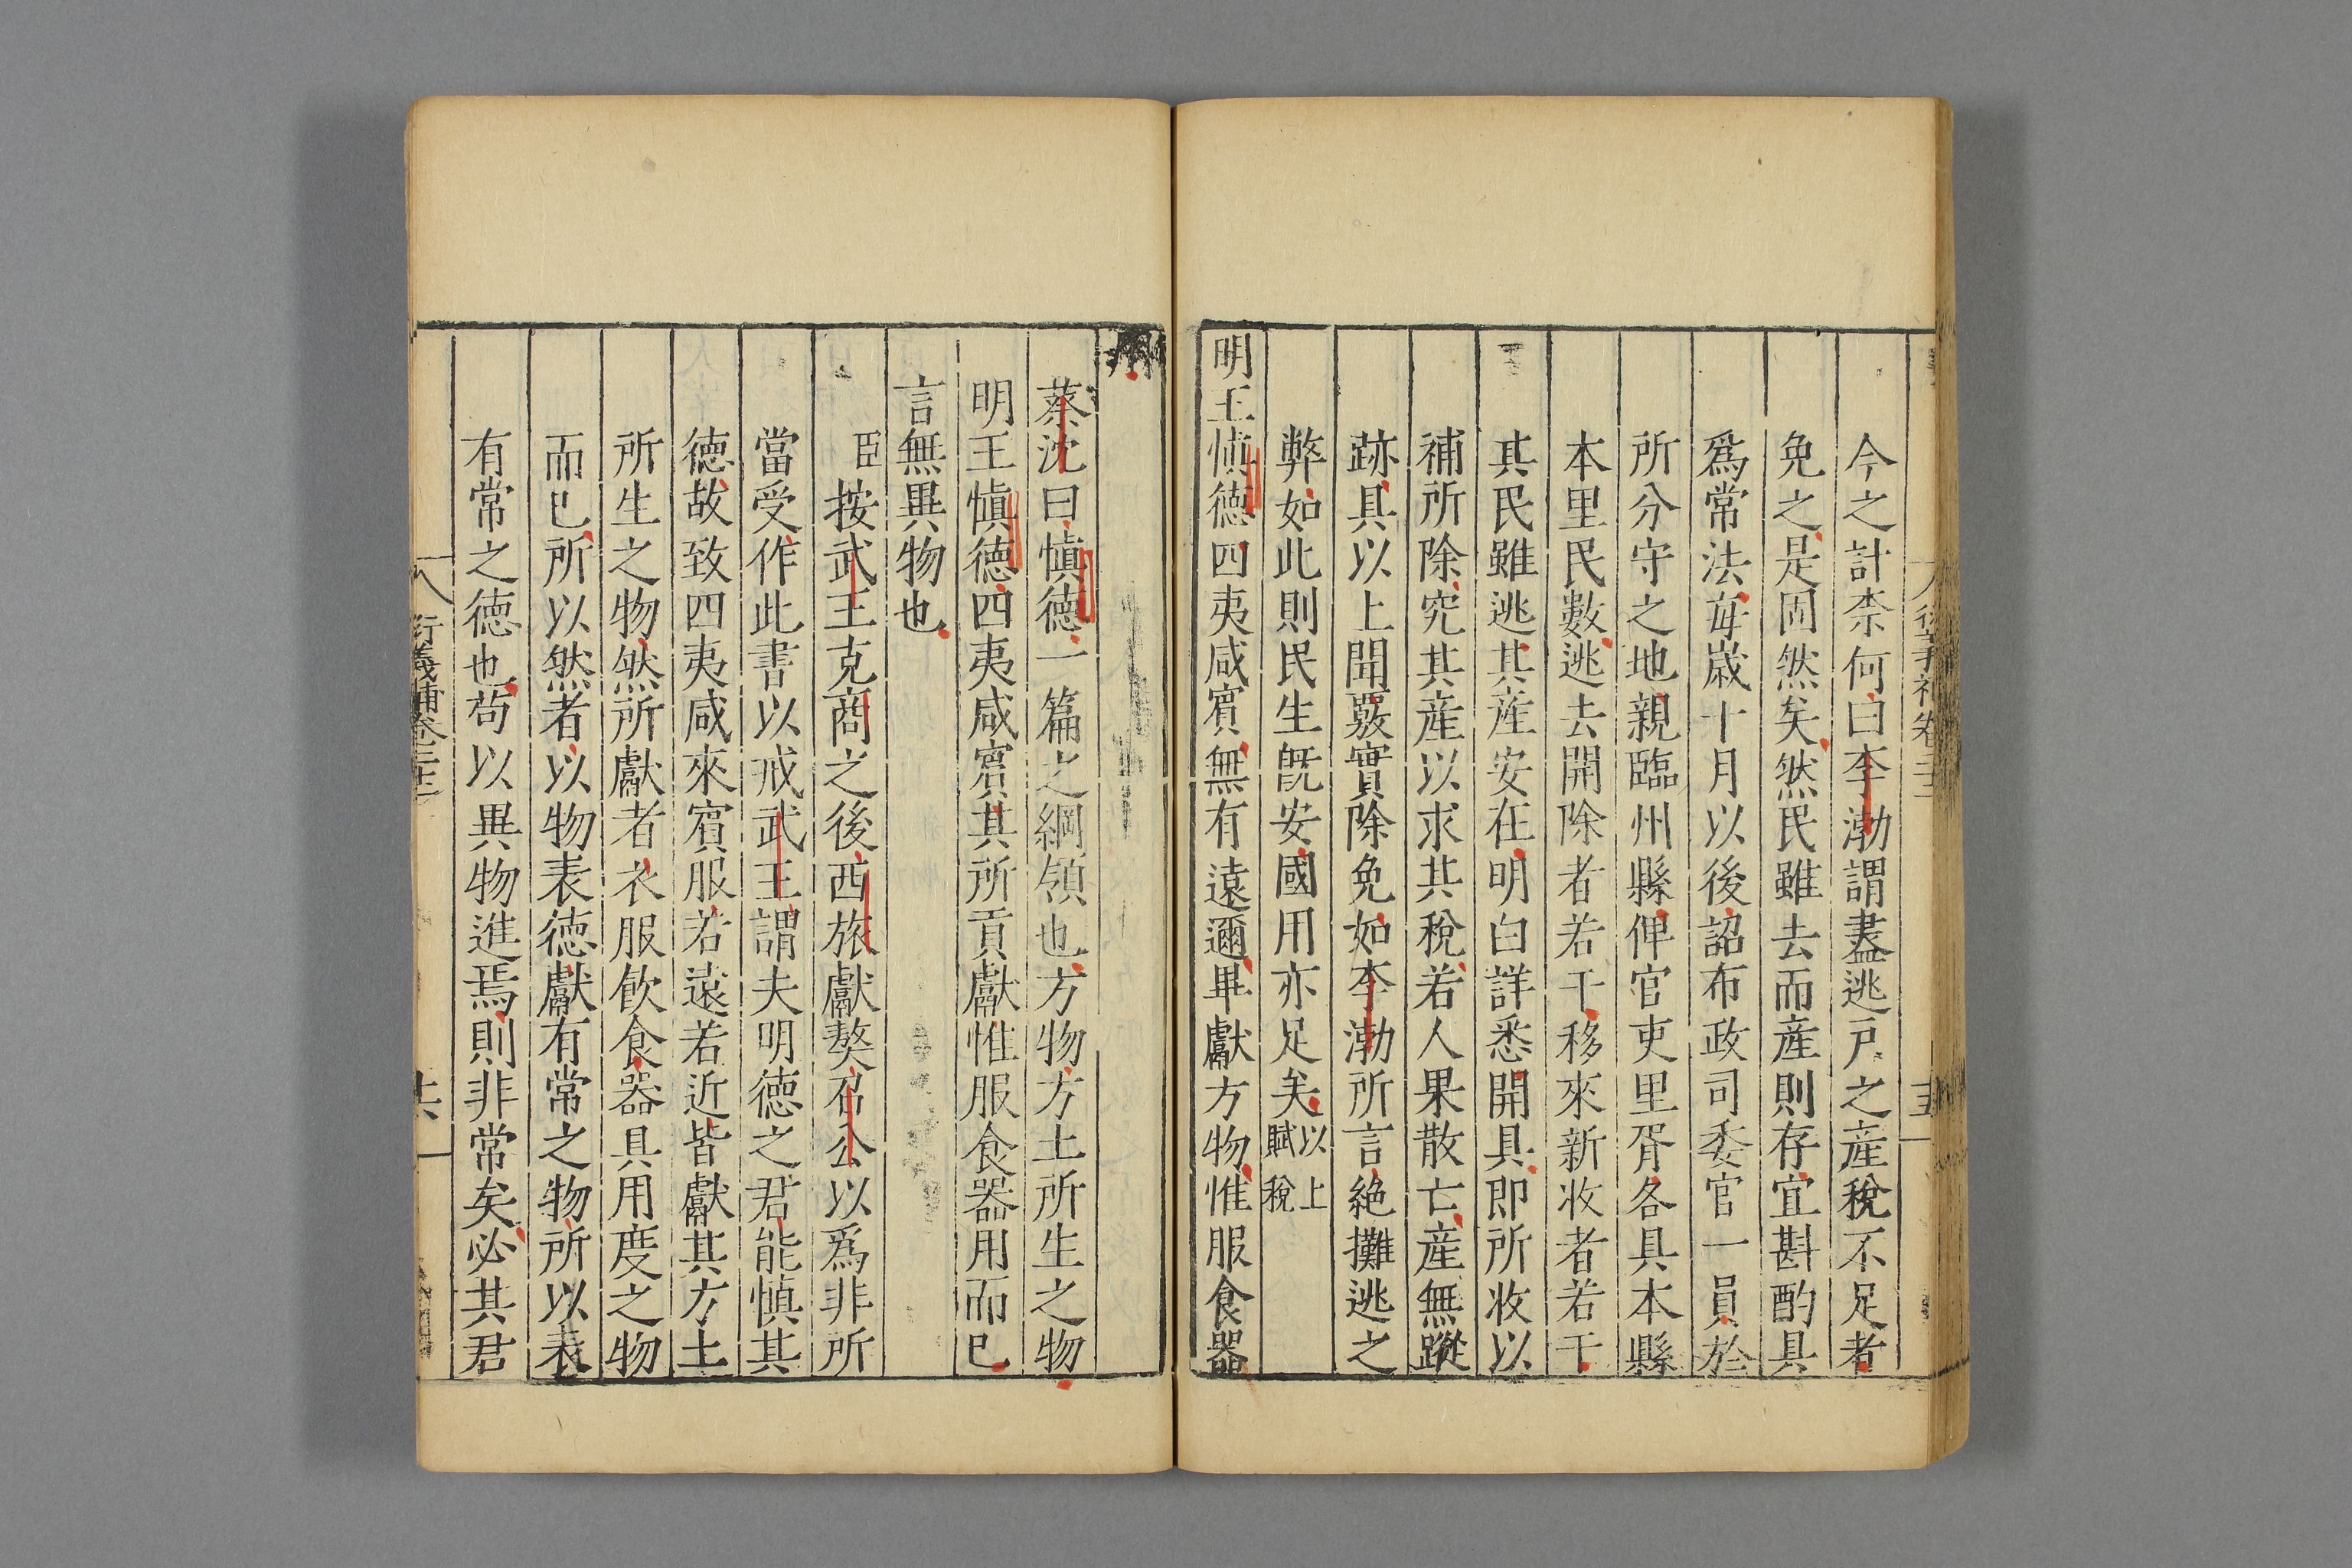 今之計柰何曰李渤謂盡逃戸之産稅不足者
免之是固然矣然民雖去而産則存宜斟酌具
爲常法每歲十月以後詔布政司委官一員於
所分守之地親臨州縣俾官吏里胥各具本縣
本里民數逃去開除者若干移來新收者若干
其民雖逃其産安在明白詳悉開具即所收以
補所除究其産以求其稅若人果散亡産無蹤
跡具以上聞覈實除免如李渤所言絶攤逃之
弊如此則民生旣安國用亦足矣以上賦稅
明王慎德四夷咸賓無有遠邇畢獻方物惟服食器
用
蔡沈曰愼德一篇之綱領也方物方土所生之物
明王愼德四夷咸賓其所貢獻惟服食器用而已
言無異物也
臣按武王克商之後西旅獻獒召公以爲非所
當受作此書以戒武王謂夫明德之君能慎其
德故致四夷咸來賓服若遠若近皆獻其方土
所生之物然所獻者衣服飲食器具用度之物
而已所以然者以物表德獻有常之物所以表
有常之德也苟以異物進焉則非常矣必其君
衍義補卷二十二